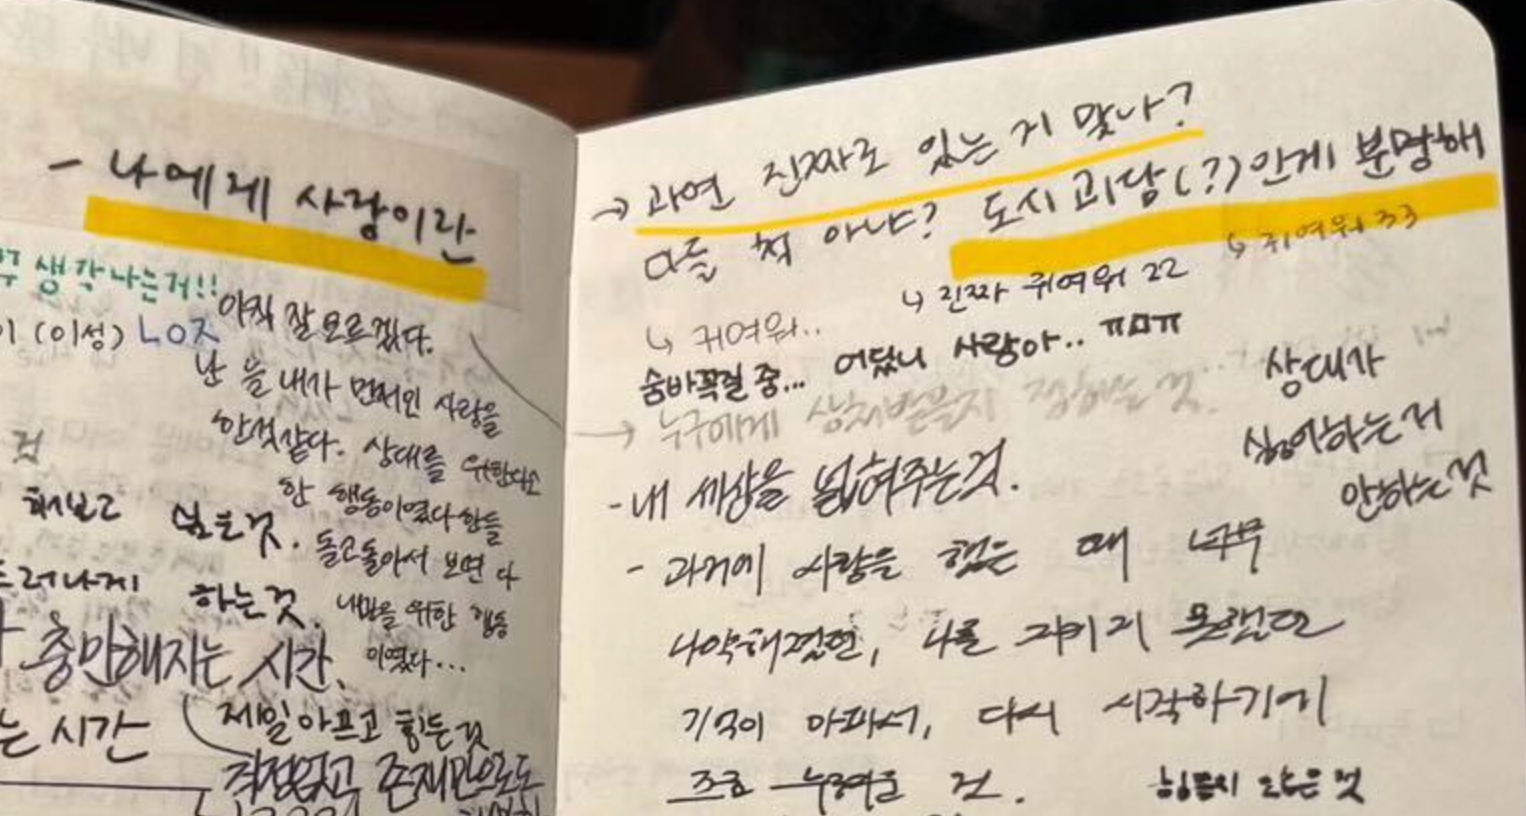 - 나에게 사랑이란
생각나는거!!
(이성) LOZ
아직 잘 모르겠다.
난 늘 내가 먼저인 사랑을
한것같다. 상대를 위한다고
한 행동이였다 한들
돌고돌아서 보면 다
내맘을 위한 행동
이였다...
것
해보고 싶은것.
드러나게 하는것.
충만해지는 시간.
는 시간
제일 아프고 힘든 것
걱정없고 존재만으로도
→ 과연 진짜로 있는 게 맞나?
다들 척 아냐? 도시괴담(?)인게 분명해
↳ 귀여워 33
↳ 진짜 귀여워 22
↳ 귀여워..
숨바꼭질 중... 어딨니 사랑아.. ㅠㅁㅠ
→ 누구에게 상처받을지 정하는 것.
상대가
싫어하는거
안하는 것
- 내 세상을 넓혀주는것.
- 과거에 사랑을 했을 때 너무
나약해졌던, 나를 지키지 못했던
기억이 아파서, 다시 시작하기에
조금 두려운 것.
힘들지 않은 것